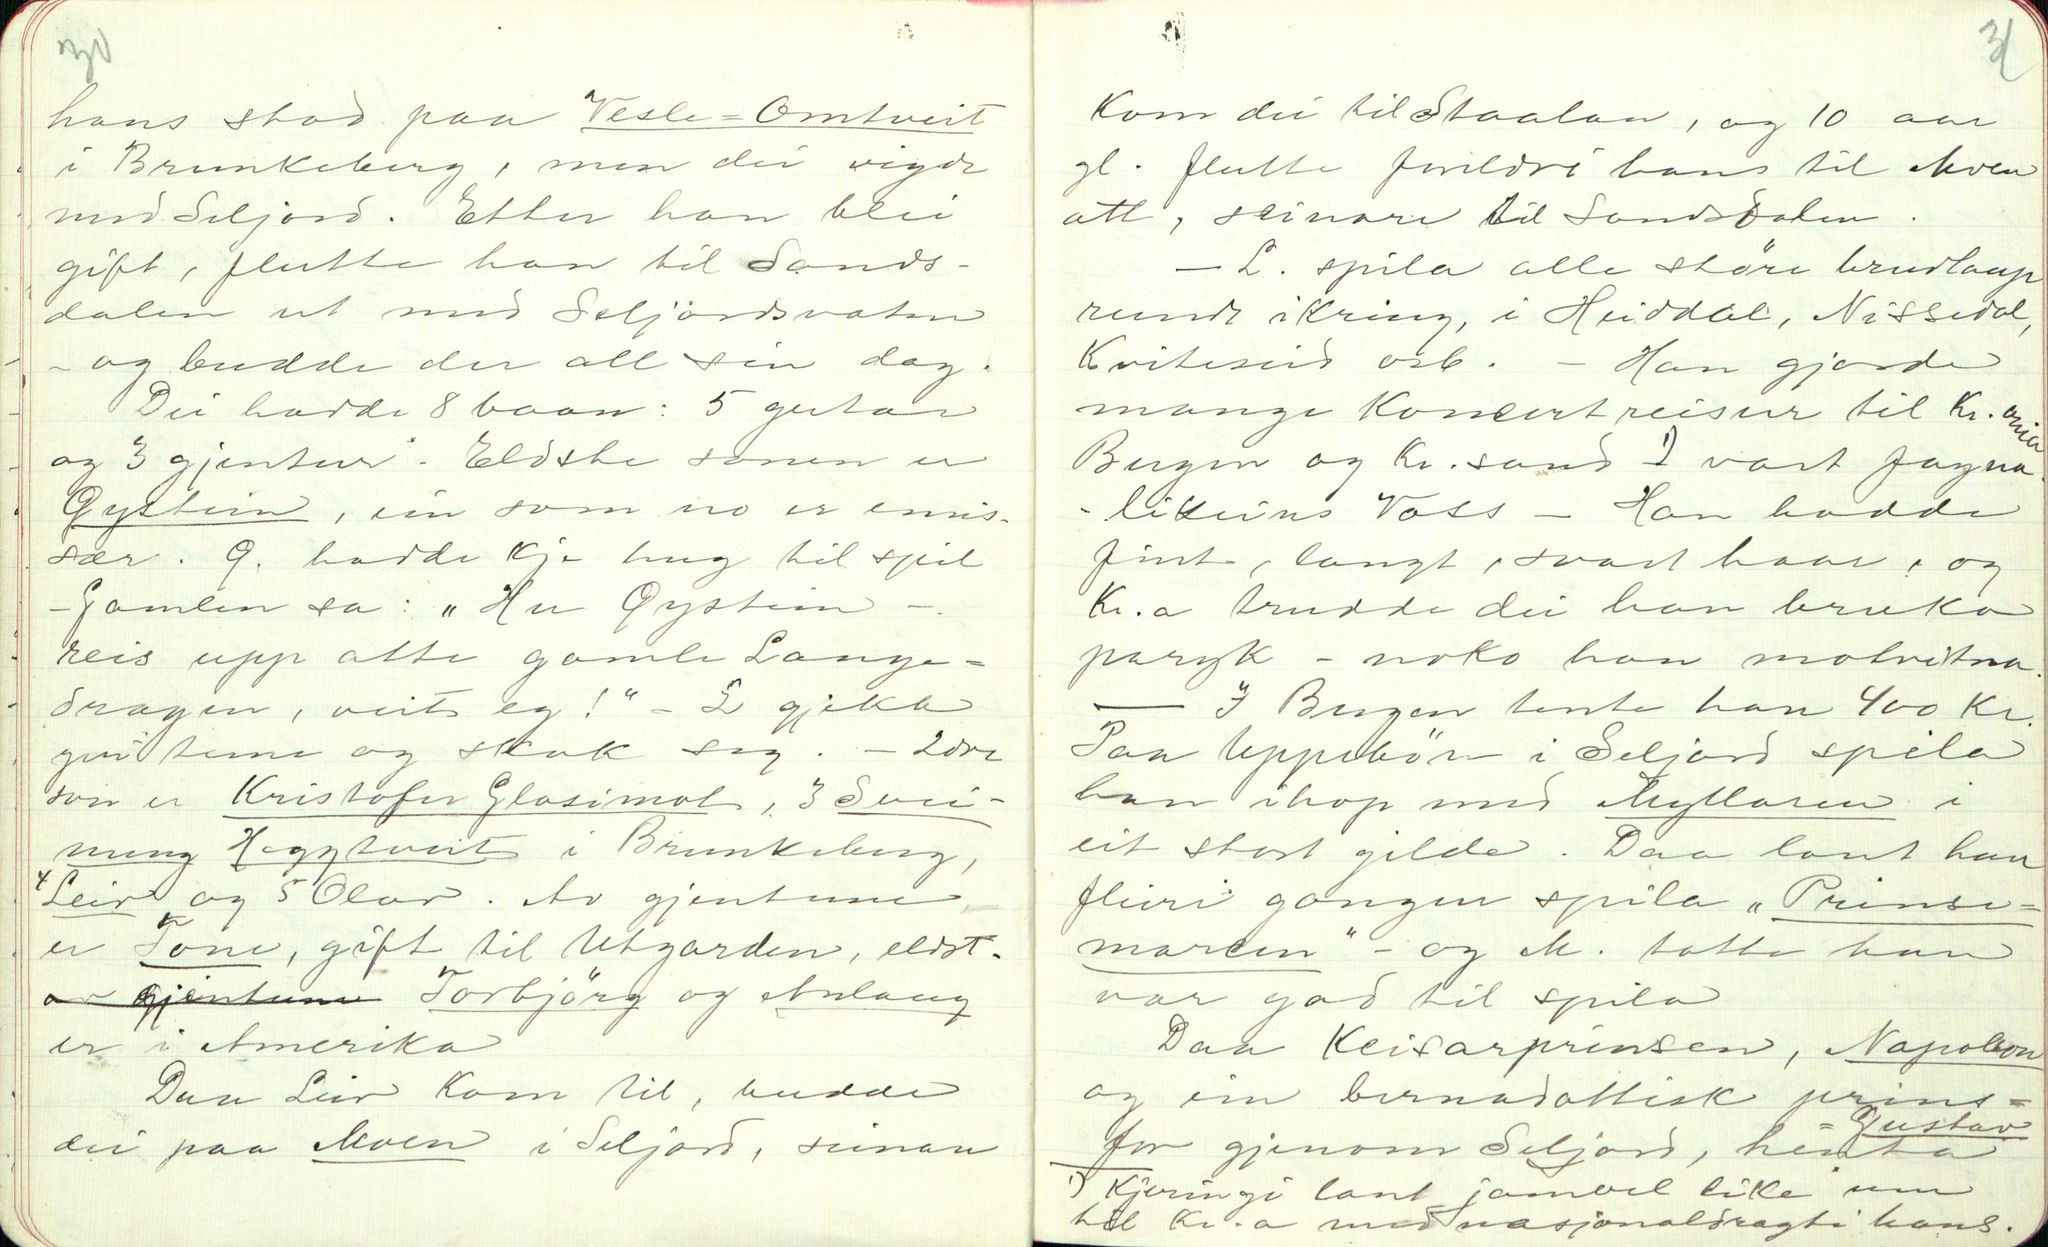 30
hans stod paa Vesle-Omtveit
i Brunkeberg, men dei vigde
med Seljord. Etter han blei
gift, flutte han til Sands-
dalen ut med Seljordsvatnet
- og budde der all sin dag.
Dei hadde 8 baan: 5 gutar
og 3 gjentur. Eldste sonen er
Øystein, ein som no er emis-
sær. Ø. hadde kje hug til spil
- Gamlen sa: „Hu Øystein -
reis upp atte gamle Lange-
dragen, veit eg!" - L gjekk
yvi tune og skok seg. - 2dre
son er Kristofer Glosimot, 3 Svei-
nung Heggtveit i Brunkeberg,
4 Leiv og 5 Olav. Av gjentune
er Tone, gift til Utgarden, eldst.
av gjentune Torbjörg og Aslaug
er i Amerika
Daa Leiv kom til, budde
dei paa Moen i Seljord, seinare
31
kom dei til Staalan, og 10 aar
gl. flutte foreldri hans til Moen
att, seinare til Sandsdalen.
- L. spila alle störe brudlaup
rundt ikring, i Heiddal, Nissedal,
Kviteseid osb. - Han gjorde
mange Koncertreisur til Kr.ania
Bergen og Kr.sand 1) vart fagna
- likeins Voss - Han hadde
fint, langt, svart haar, og
Kr.a trudde dei han bruka
paryk - noko han motvitna.
- I Bergen tente han 400 Kr.
Paa Uppebön i Seljord spila
han ihop med Myllaren i
eit stort gilde. Daa laut han
fleiri gonger spila „Prinse-
marcen" - og M. totte han
var god til spila
Daa Keisarprinsen, Napoleon
og ein bernadottisk prins-
- Gustav
for gjenom Seljord, henta
1) Kjeringi laut jamvel like um
til Kr.a med nasjonaldragti hans.